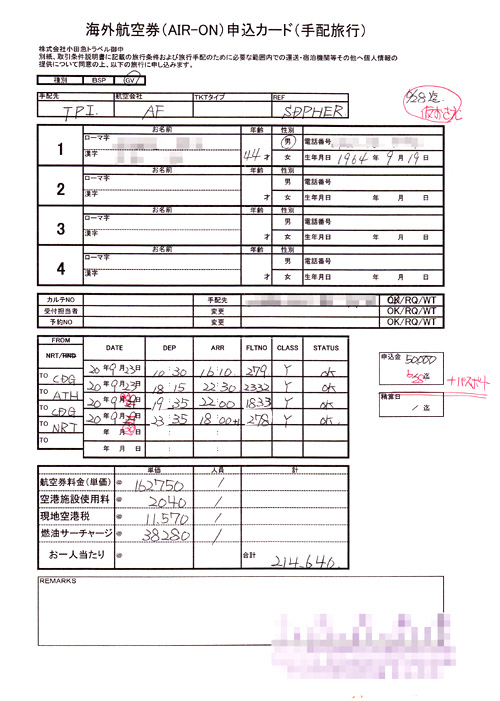 海外航空券(AIR-ON)申込カード(手配旅行)
株式会社小田急トラベル御中
別紙、取引条件説明書に記載の旅行条件および旅行手配のために必要な範囲内での運送・宿泊機関等その他へ個人情報の
提供について同意の上、以下の旅行に申込みます。
種別 BSP GV
手配先 航空会社 TKTタイプ REF
TPI. AF SDPHER
お名前 年齢 性別
1 ローマ字 男 電話番号
漢字 44才 女 生年月日 1964年9月19日
お名前 年齢 性別
2 ローマ字 男 電話番号
漢字 才 女 生年月日 年 月 日
お名前 年齢 性別
3 ローマ字 男 電話番号
漢字 才 女 生年月日 年 月 日
お名前 年齢 性別
4 ローマ字 男 電話番号
漢字 才 女 生年月日 年 月 日
カルテNO 手配先 OK/RQ/WT
受付担当者 変更 OK/RQ/WT
予約NO 変更 OK/RQ/WT
FROM DATE DEP ARR FLTNO CLASS STATUS
NRT/HND 20年9月23日 10:30 16:10 279 Y ok
TO CDG 20年9月23日 18:15 22:30 2332 Y ok
TO ATH 20年9月 日 19:35 22:00 1833 Y ok
TO CDG 20年9月 日 23:35 18:00+1 278 Y ok
TO NRT 年 月 日 : :
TO 年 月 日 : :
申込金 50000
+パスポート
精算日
/ 迄
単価 人員 計
航空券料金(単価) @ 162750 /
空港施設使用料 @ 2040 /
現地空港税 @ 11,570 /
燃油サーチャージ @ 38280 /
お一人当たり @ 合計 214,640.
REMARKS